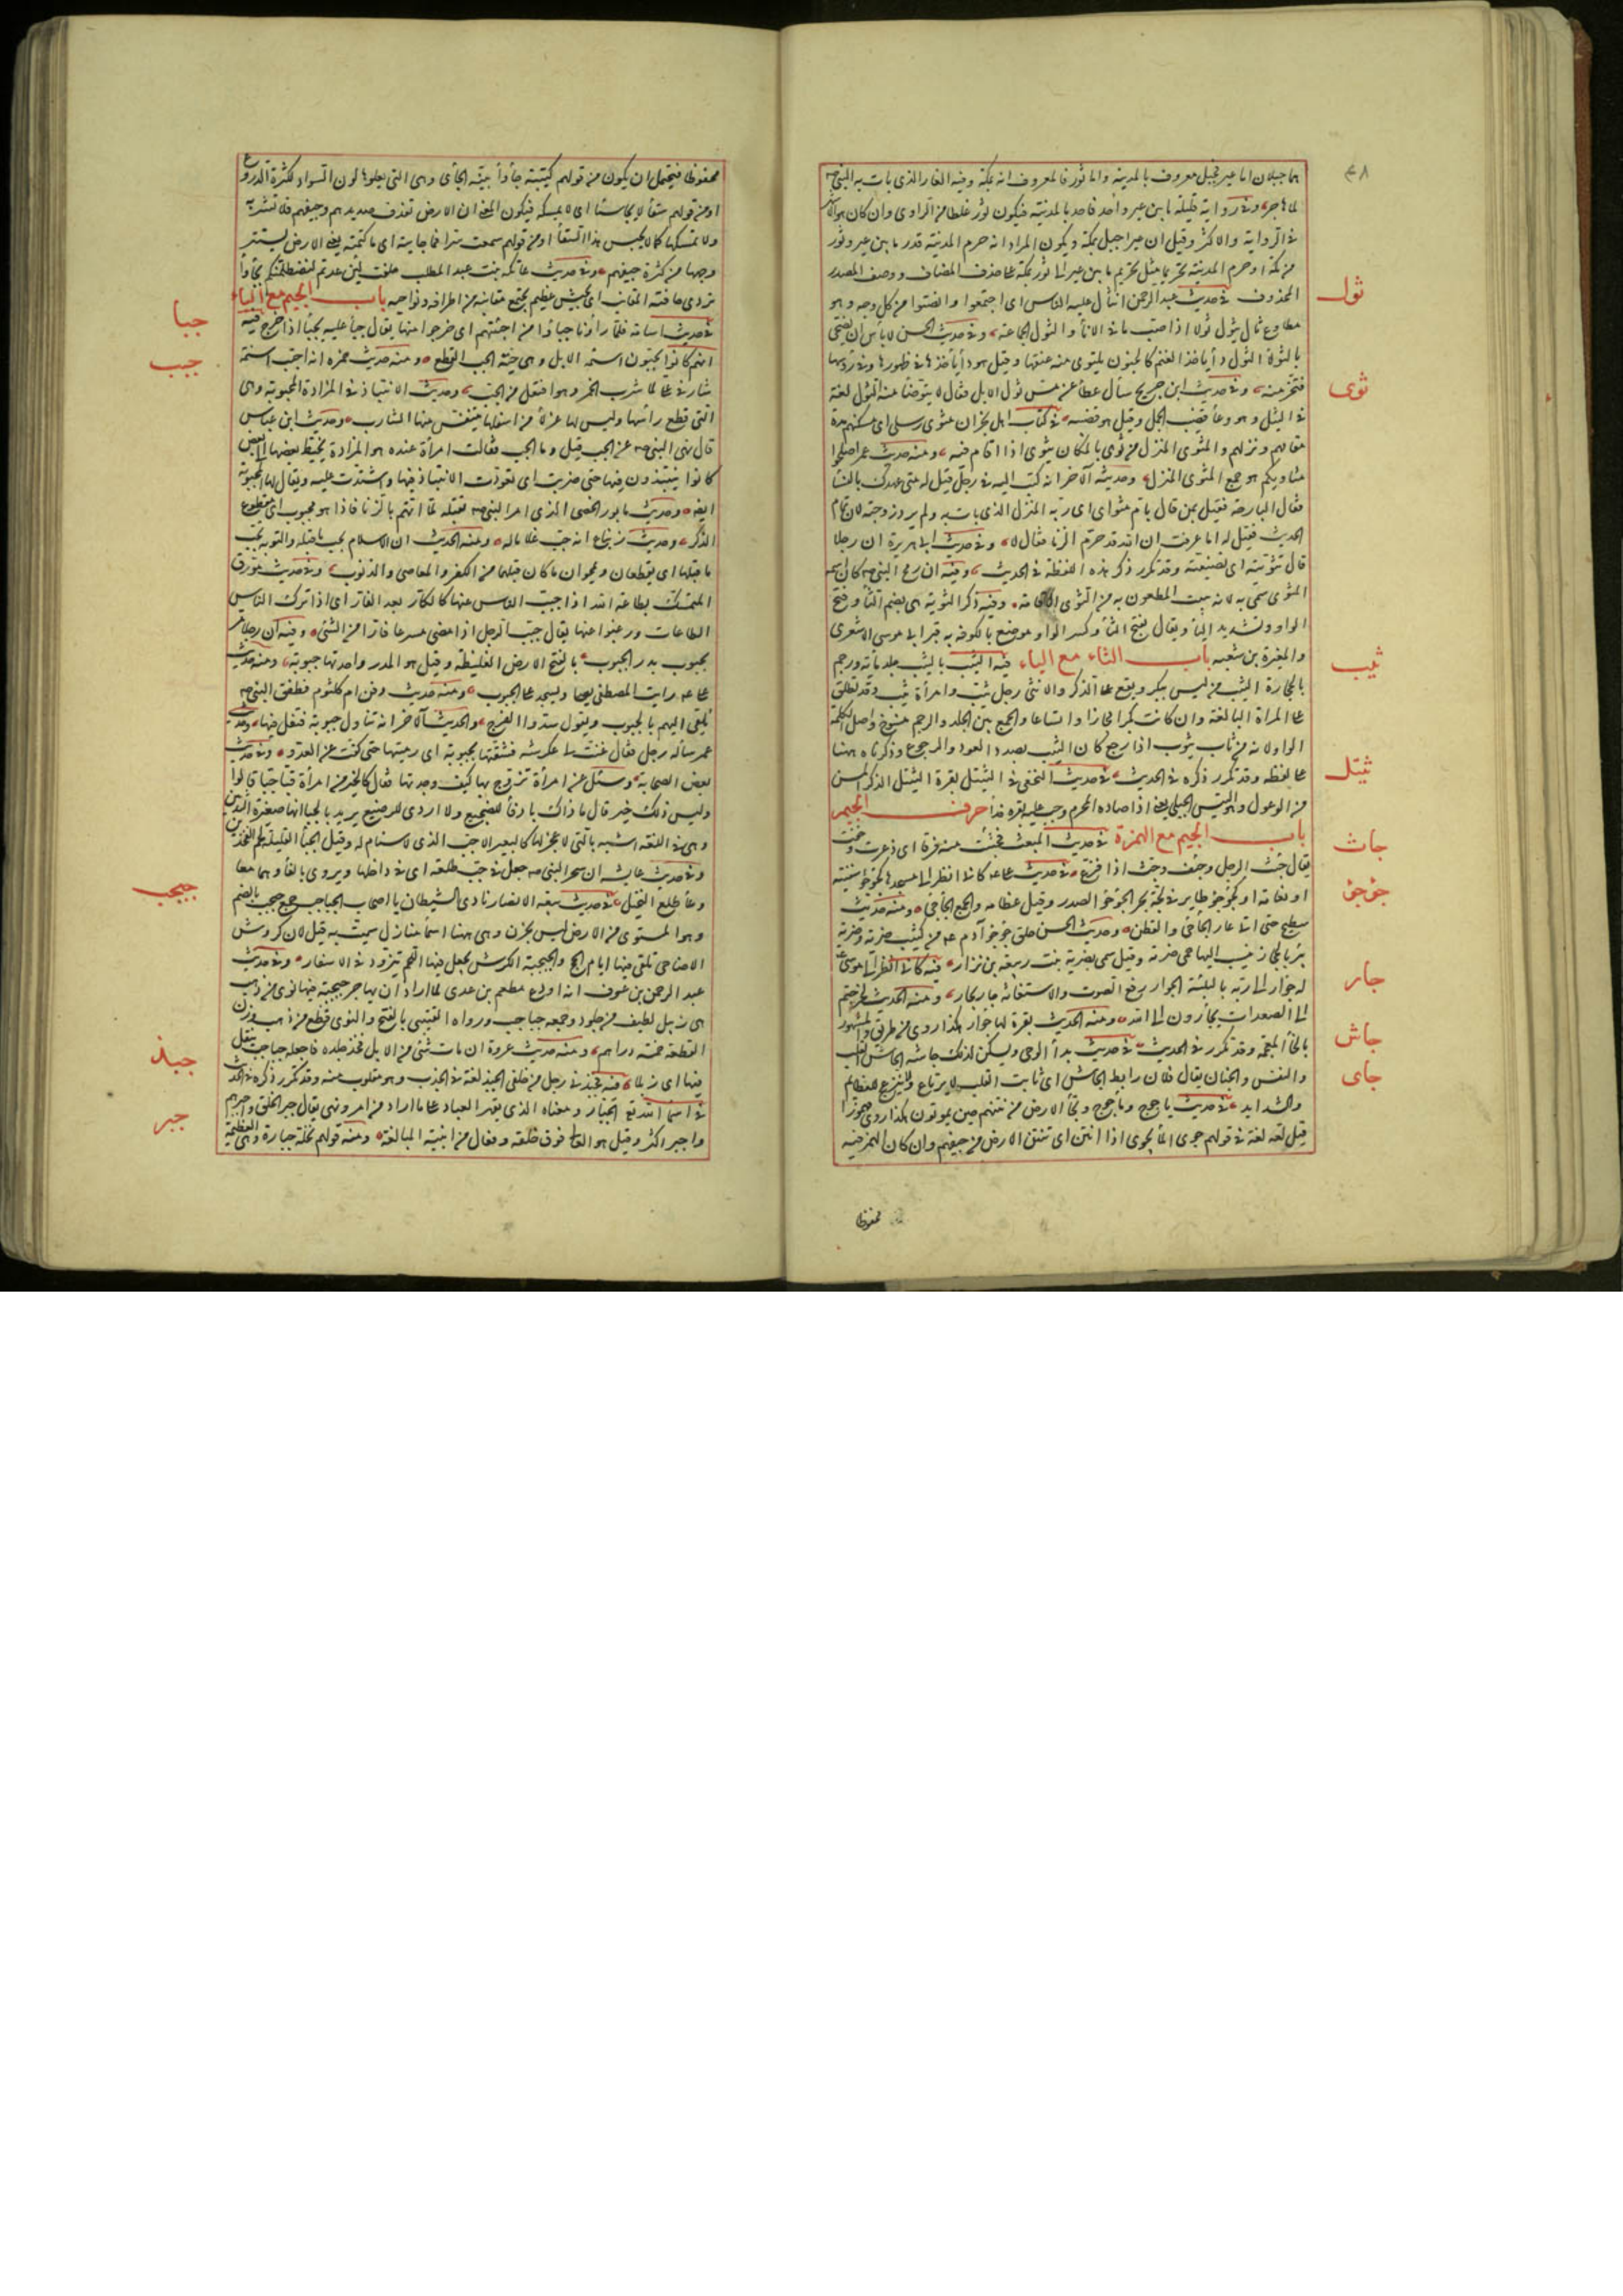 ٤٨
هما جبلان اما عير فجبل معروف بالمدينة واما ثور فالمعروف انه بمكة وفيه الغار الذى بات به النبى صه
لما هاجر وفى رواية قليلة ما بين عير واحد واحد بالمدينة فيكون ثور غلطا من الراوى وان كان هو الاشهر
فى الرواية والاكثر وقيل ان عيرا جبل بمكة ويكون المراد انه حرم المدينة قدر ما بين عير وثور
من مكة او حرم المدينة تحريما مثل تحريم ما بين عير الى ثور بمكة على حذف المضاف ووصف المصدر
ثول
المحذوف فى حديث عبد الرحمن انثال عليه الناس اى اجتمعوا وانصبوا من كل وجه وهو
مطاوع ثال يثول ثولا اذا صب ما فى الاناء والثول الجماعة وفى حديث الحسن لا باس ان يضحى
بالثولاء الثول داء ياخذ الغنم كالجنون يلتوى منه عنقها وقيل هو داء ياخذها فى ظهورها وفى رؤسها
ثوى
فتخر منه وفى حديث ابن جريج سأل عطاء عن مس ثول الابل فقال لا يتوضأ منه الثول لغة
فى الثيل وهو وعاء قضيب الجمل وقيل هو قضيبه فى كتاب اهل نجران مثوى رسلى اى مسكنهم مدة
مقامهم ونزلهم والمثوى المنزل من ثوى بالمكان يثوى اذا اقام فيه ومنه حديث عمر اصلحوا
مثاويكم هو جمع المثوى المنزل وحديثه الآخر انه كتب اليه فى رجل قيل له متى عهدك بالنساء
فقال البارحة فقيل بمن قال بام مثواى اى ربة المنزل الذى بات به ولم يرد زوجته لان تمام
الحديث فقيل له اما عرفت ان الله قد حرم الزنا فقال لا وفى حديث ابى هريرة ان رجلا
قال تثويته اى تضيفته وقد تكرر ذكر هذه اللفظة فى الحديث وفيه ان رمح النبى صه كان اسمه
المثوى سمى به لانه يثبت المطعون به من الثوى الاقامة وفيه ذكر الثوية هى بضم الثاء وفتح
الواو وتشديد الياء ويقال بفتح الثاء وكسر الواو موضع بالكوفة به قبر ابى موسى الاشعرى
ثيب
والمغيرة بن شعبه باب الثاء مع الياء فيه الثيب بالثيب جلد مائة ورجم
بالحجارة الثيب من ليس ببكر ويقع على الذكر والانثى رجل ثيب وامرأة ثيب وقد يطلق
على المرأة البالغة وان كانت بكرا مجازا واتساعا والجمع بين الجلد والرجم منسوخ واصل الكلمة
الواو لانه من ثاب يثوب اذا رجع كان الثيب بصدد العود والرجوع وذكرناه ههنا
ثيتل
على لفظه وقد تكرر ذكره فى الحديث فى حديث النخعى فى الثيتل بقرة الثيتل الذكر المسن
من الوعول وهو التيس الجبلى يعنى اذا صاده المحرم وجب عليه بقرة فداء حرف الجيم
جاث
باب الجيم مع الهمزة فى حديث المبعث فجئثت منه فرقا اى ذعرت وخفت
يقال جئث الرجل وجئف وجث اذا فزع فى حديث على عه كانى انظر الى مسجدها كجؤجؤ سفينة
جؤجؤ
او نعامة او كجؤجؤ طاير فى لجة بحر الجؤجؤ الصدر وقيل عظامه والجمع الجآجى ومنه حديث
سطيح حتى اتى عار الجآجى والقطن وحديث الحسن خلق جؤجؤ آدم عه من كثيب ضرية وضرية
بئر بالحجاز ينسب اليها حمى ضرية وقيل سمى بضرية بنت ربيعة بن نزار فيه كانى انظر الى موسى
جار
له جؤار الى ربه بالتلبية الجؤار رفع الصوت والاستغاثة جار يجار ومنه الحديث لخرجتم
الى الصعدات تجأرون الى الله ومنه الحديث بقرة لها جؤار هكذا روى من طريق والمشهور
جاش
بالخاء المعجمة وقد تكرر فى الحديث فى حديث بدأ الوحى ويسكن لذلك جاشه الجاش القلب
جاى
والنفس والجنان يقال فلان رابط الجاش اى ثابت القلب لا يرتاع ولا ينزعج للعظايم
والشدايد فى حديث ياجوج وماجوج وتجأى الارض من نتنهم حين يموتون هكذا روى مهموزا
قيل لعله لغة فى قولهم جوى الماء يجوى اذا انتن اى تنتن الارض من جيفهم وان كان الهمز فيه
محفوظا
محفوظا فيحتمل ان يكون من قولهم كتيبة جأواء بينة الجأى وهى التى يعلوها لون السواد لكثرة الدروع
او من قولهم سقاء لا يجأى شيئا اى لا يمسكه فيكون المعنى ان الارض تقذف صديدهم وجيفهم فلا تشربه
ولا تمسكها كما لا يحبس هذا السقاء او من قولهم سمعت سرا فما جأيته اى ما كتمته يعنى الارض يستتر
وجهها من كثرة جيفهم وفى حديث عاتكة بنت عبد المطلب حلفت لئن عدتم لنصطلمنكم بجأواء
تردى حافتيه المقانب اى بجيش عظيم يجتمع مقانبه من اطرافه ونواحيه باب الجيم مع الباء
جبا
فى حديث اسامة فلما رأونا جبأوا من اخبيتهم اى خرجوا منها يقال جبأ عليه يجبأ اذا خرج فيه
جبب
انهم كانوا يجبون اسنمة الابل وهى حية الجب القطع ومنه حديث حمزه انه اجتب اسنمة
شارفى على لما شرب الخمر وهو افتعل من الجب وحديث الانتباذ فى المزادة المجبوبة وهى
التى قطع رأسها وليس لها عزلاء من اسفلها يتنفس منها الشارب وحديث ابن عباس
قال نهى النبى صه عن الجب قيل وما الجب فقالت امرأة عنده هو المزادة يخيط بعضها الى بعض
كانوا ينتبذون فيها حتى ضريت اى تعودت الانتباذ فيها واشتدت عليه ويقال لها المجبوبة
ايضا وحديث مابور الخصى الذى امر النبى صه بقتله لما اتهم بالزنا فاذا هو مجبوب اى مقطوع
الذكر وحديث زنباع انه جب غلاما له ومنه الحديث ان الاسلام يجب ما قبله والتوبة تجب
ما قبلها اى يقطعان ويمحوان ما كان قبلهما من الكفر والمعاصى والذنوب وفى حديث مورق
المتمسك بطاعة الله اذا جبب الناس عنها كالكار بعد الفار اى اذا ترك الناس
الطاعات ورغبوا عنها يقال جبب الرجل اذا مضى مسرعا فارا من الشئ وفيه ان رجلا مر
بجبوب بدر الجبوب بالفتح الارض الغليظة وقيل هو المدر واحدتها جبوبة ومنه حديث
على عه رايت المصطفى يصلى ويسجد على الجبوب ومنه حديث دفن ام كلثوم فطفق النبى صه
يلقى اليهم بالجبوب ويقول سدوا الفرج والحديث الآخر انه تناول جبوبة فتفل فيها وحديث
عمر سأله رجل فقال عنت لى عكرشة فشنقتها بجبوبة اى رميتها حتى كفت عن العدو وفى حديث
بعض الصحابة وسئل عن امرأة تزوج بها كيف وجدتها فقال كالخير من امرأة قباء جباء قالوا
وليس ذلك خير قال ما ذاك بادفأ للضجيع ولا اروى للرضيع يريد بالجباء انها صغيرة الثديين
وهى فى اللغة اشبه بالتى لا عجز لها كالبعير الاجب الذى لا سنام له وقيل الجباء القليلة لحم الفخذين
وفى حديث عايشه ان سحر النبى صه جعل فى جب طلعة اى فى داخلها ويروى بالفاء وهما معا
جبجب
وعاء طلع النخيل فى حديث بيعة الانصار نادى الشيطان يا اصحاب الجباجب جمع جبجب بالضم
وهو المستوى من الارض ليس بحزن وهى ههنا اسماء منازل سميت به قيل لان كروش
الاضاحى تلقى فيها ايام الحج والجبجبة الكرش يجعل فيها اللحم يتزود فى الاسفار وفى حديث
عبد الرحمن بن عوف انه اودع مطعم بن عدى لما اراد ان يهاجر جبجبة فيها نوى من ذهب
هى زبيل لطيف من جلود وجمعه جباجب ورواه القتيبى بالفتح والنوى قطع من ذهب وزن
جبذ
القطعة خمسة دراهم ومنه حديث عروة ان مات شئ من الابل فخذ جلده فاجعله جباجب ينقل
فيها اى زبلا فيه فجبذنى رجل من خلفى الجبذ لغة فى الجذب وهو مقلوب منه وقد تكرر ذكره فى الحديث
جبر
فى اسماء الله تع الجبار ومعناه الذى يقهر العباد على ما اراد من امر ونهى يقال جبر الخلق واجبرهم
واجبر اكثر وقيل هو العالى فوق خلقه وفعال من ابنية المبالغة ومنه قولهم نخلة جبارة وهى العظيمة